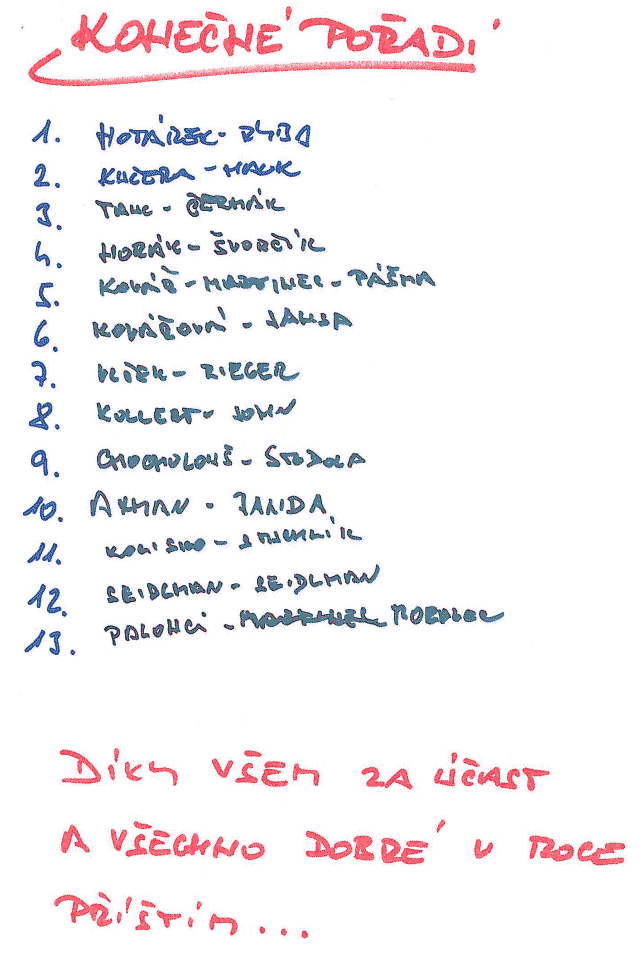 KONEČNÉ POŘADÍ
1. HOTÁREK - RYBA
2. KUČERA - HAUK
3. TAUC - ČERMÁK
4. HORÁK - ŠVORČÍK
5. KOVÁŘ - MARTINEC - PÁŠMA
6. KOVÁŘOVÁ - JANSA
7. VLČEK - RIEGER
8. KOLLERT - JOHN
9. CHOCHOLOUŠ - STODOLA
10. AXMAN - JANDA
11.
12. SEIDLMAN - SEIDLMAN
13. PALONCI -
DÍKY VŠEM ZA ÚČAST
A VŠECHNO DOBRÉ V ROCE
PŘÍŠTÍM...